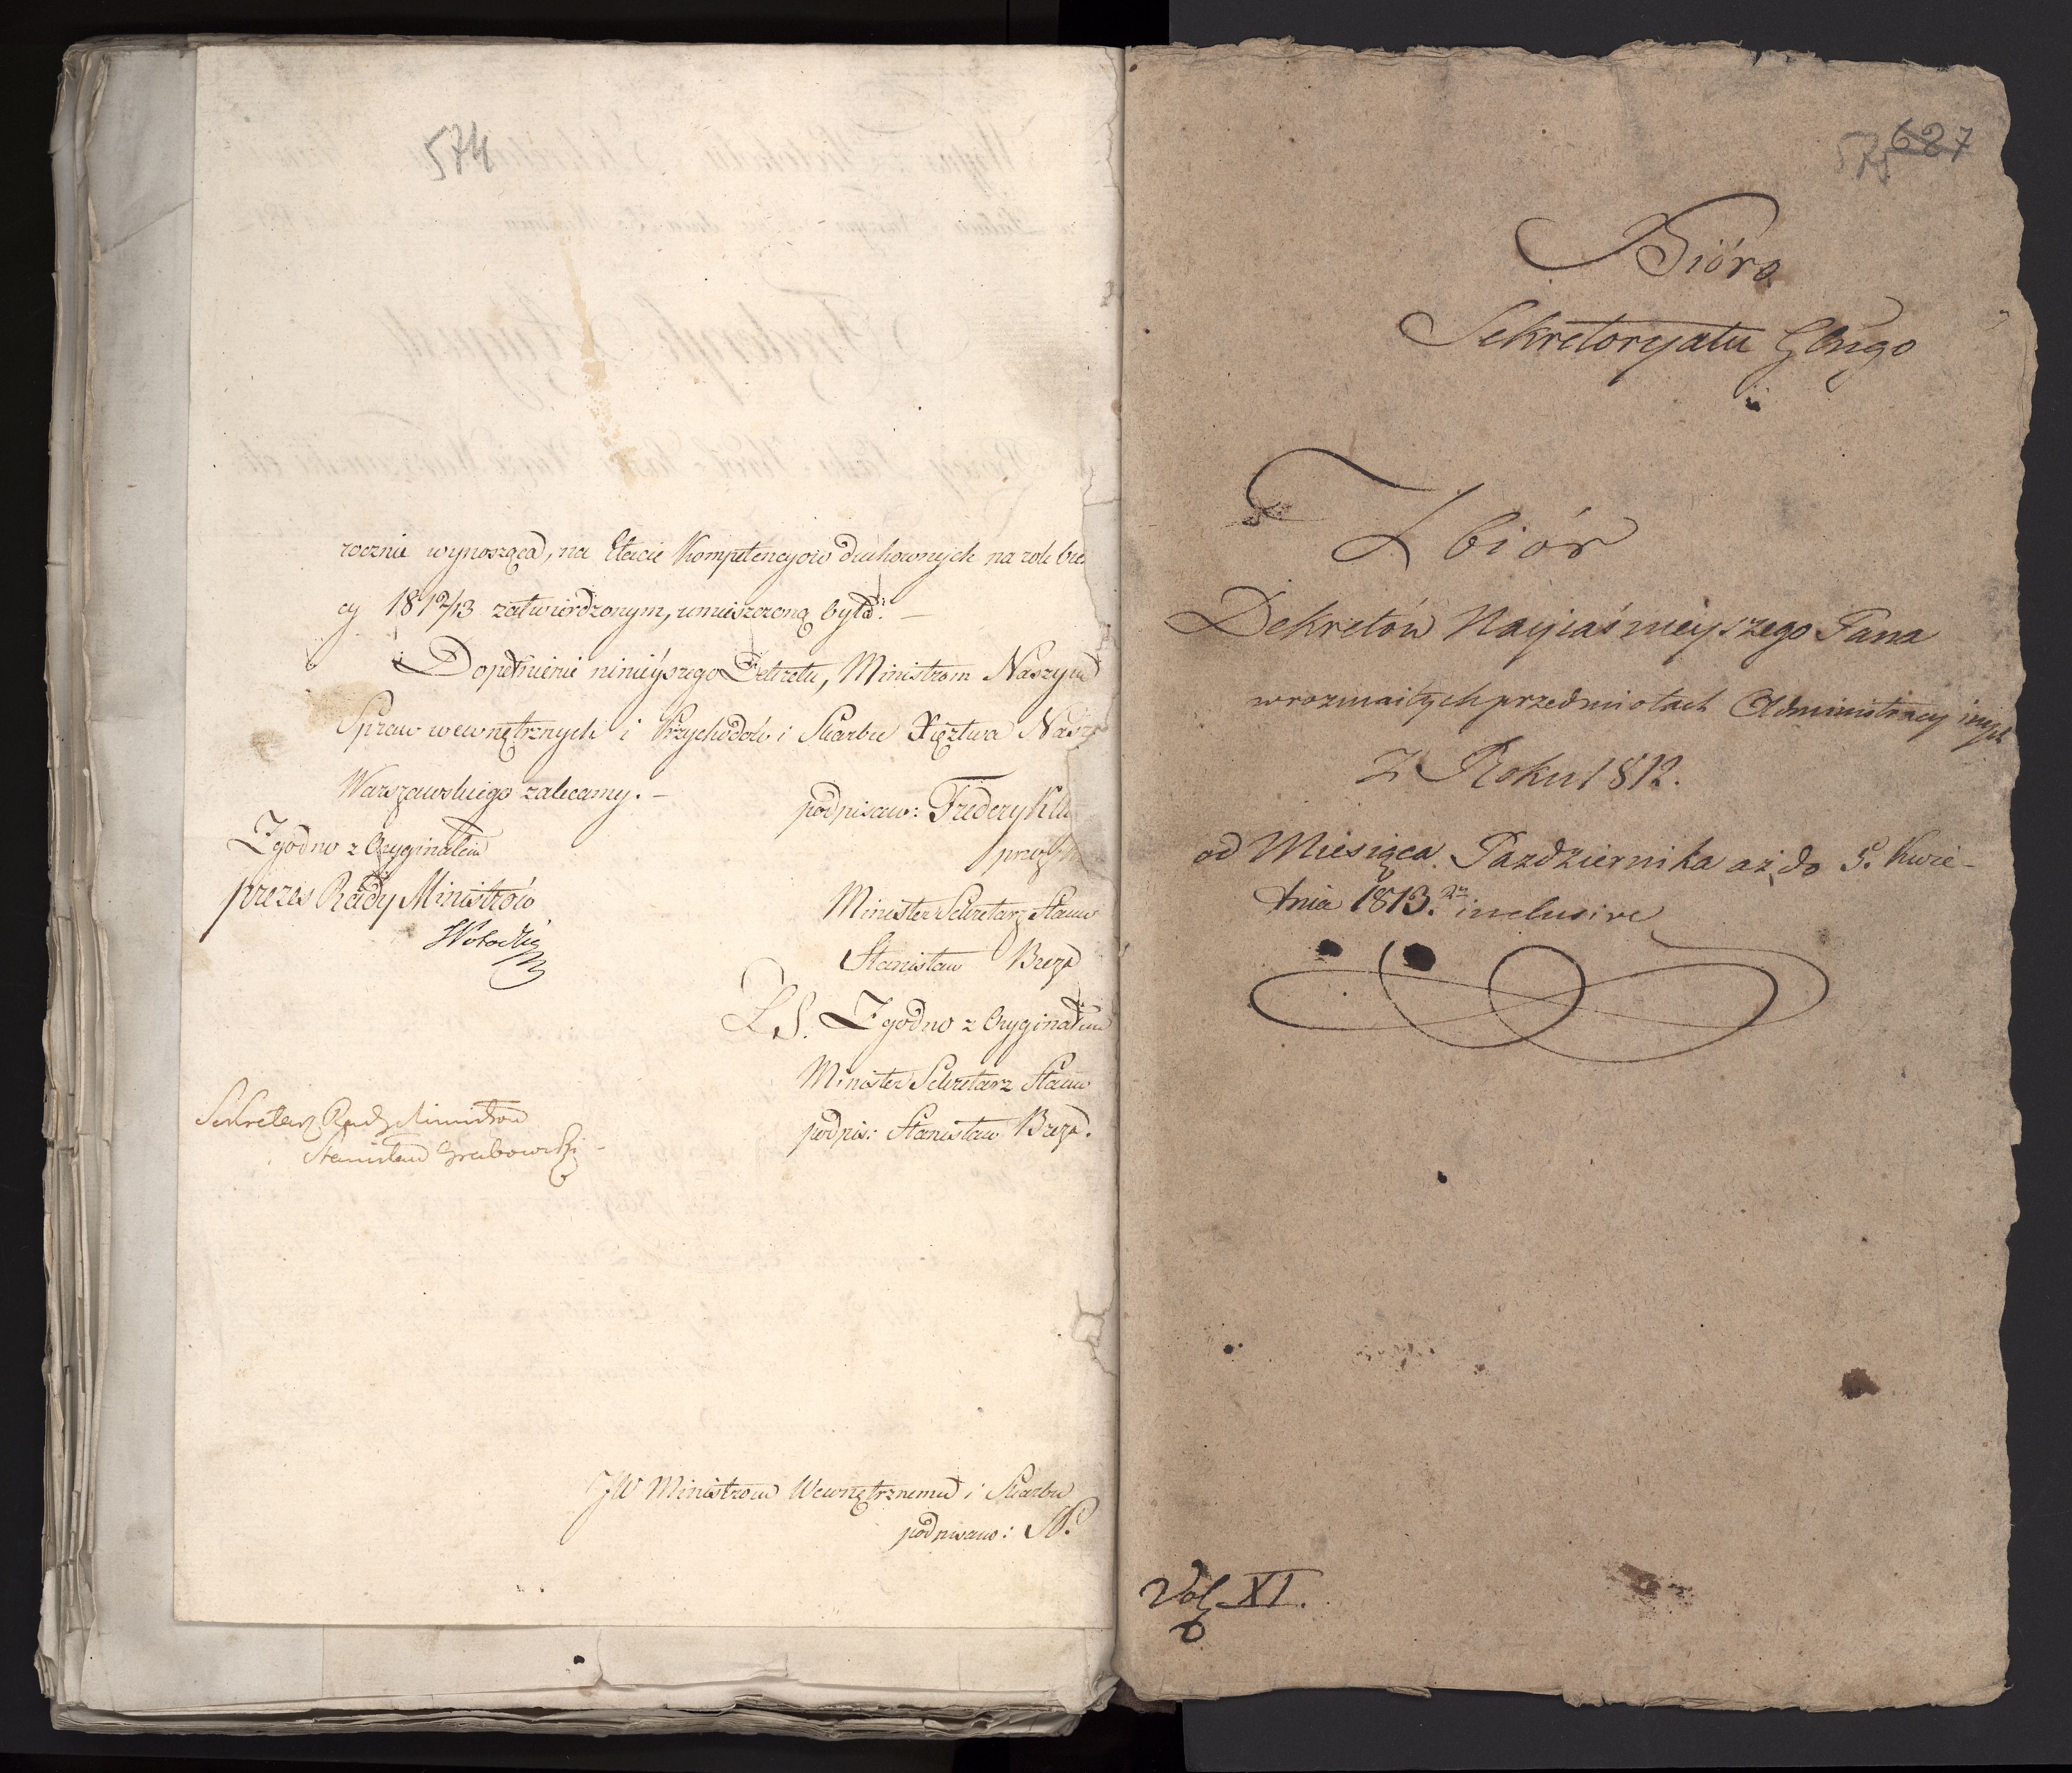 574
rocznie wynosząca, na Etacie Kompetencyow duchownych na rok bie
cy 1812/13 zatwierdzonym, umieszczoną była. —
Dopełnienie ninieyszego Dekretu, Ministrom Naszym
Spraw wewnętrznych i Przychodów i Skarbu Xięztwa Nasze
Warszawskiego zalecamy. —
podpisano: Frederyk Au
Zgodno z Oryginałem
przez
prezes Rady Ministrów
Minister Sekretarz Stanu
Stanisław Breza
L.S. Zgodno z Oryginałem
Minister Sekretarz Stanu
podpis: Stanisław Breza.
Sekretarz Rady Ministrow
Stanisław Grabowski
JW Ministrom Wewnętrznemu i Skarbu
podpisano: SB.
627
575
Bióra
Sekretoryatu Glnego
Zbiór
Dekretów Nayiaśnieyszego Pana
w rozmaitych przedmiotach Administracy inych
Z Roku 1812.
od Miesiąca Pazdziernika aż do 5. Kwie-
tnia 1813. inclusive
Vol. XI.